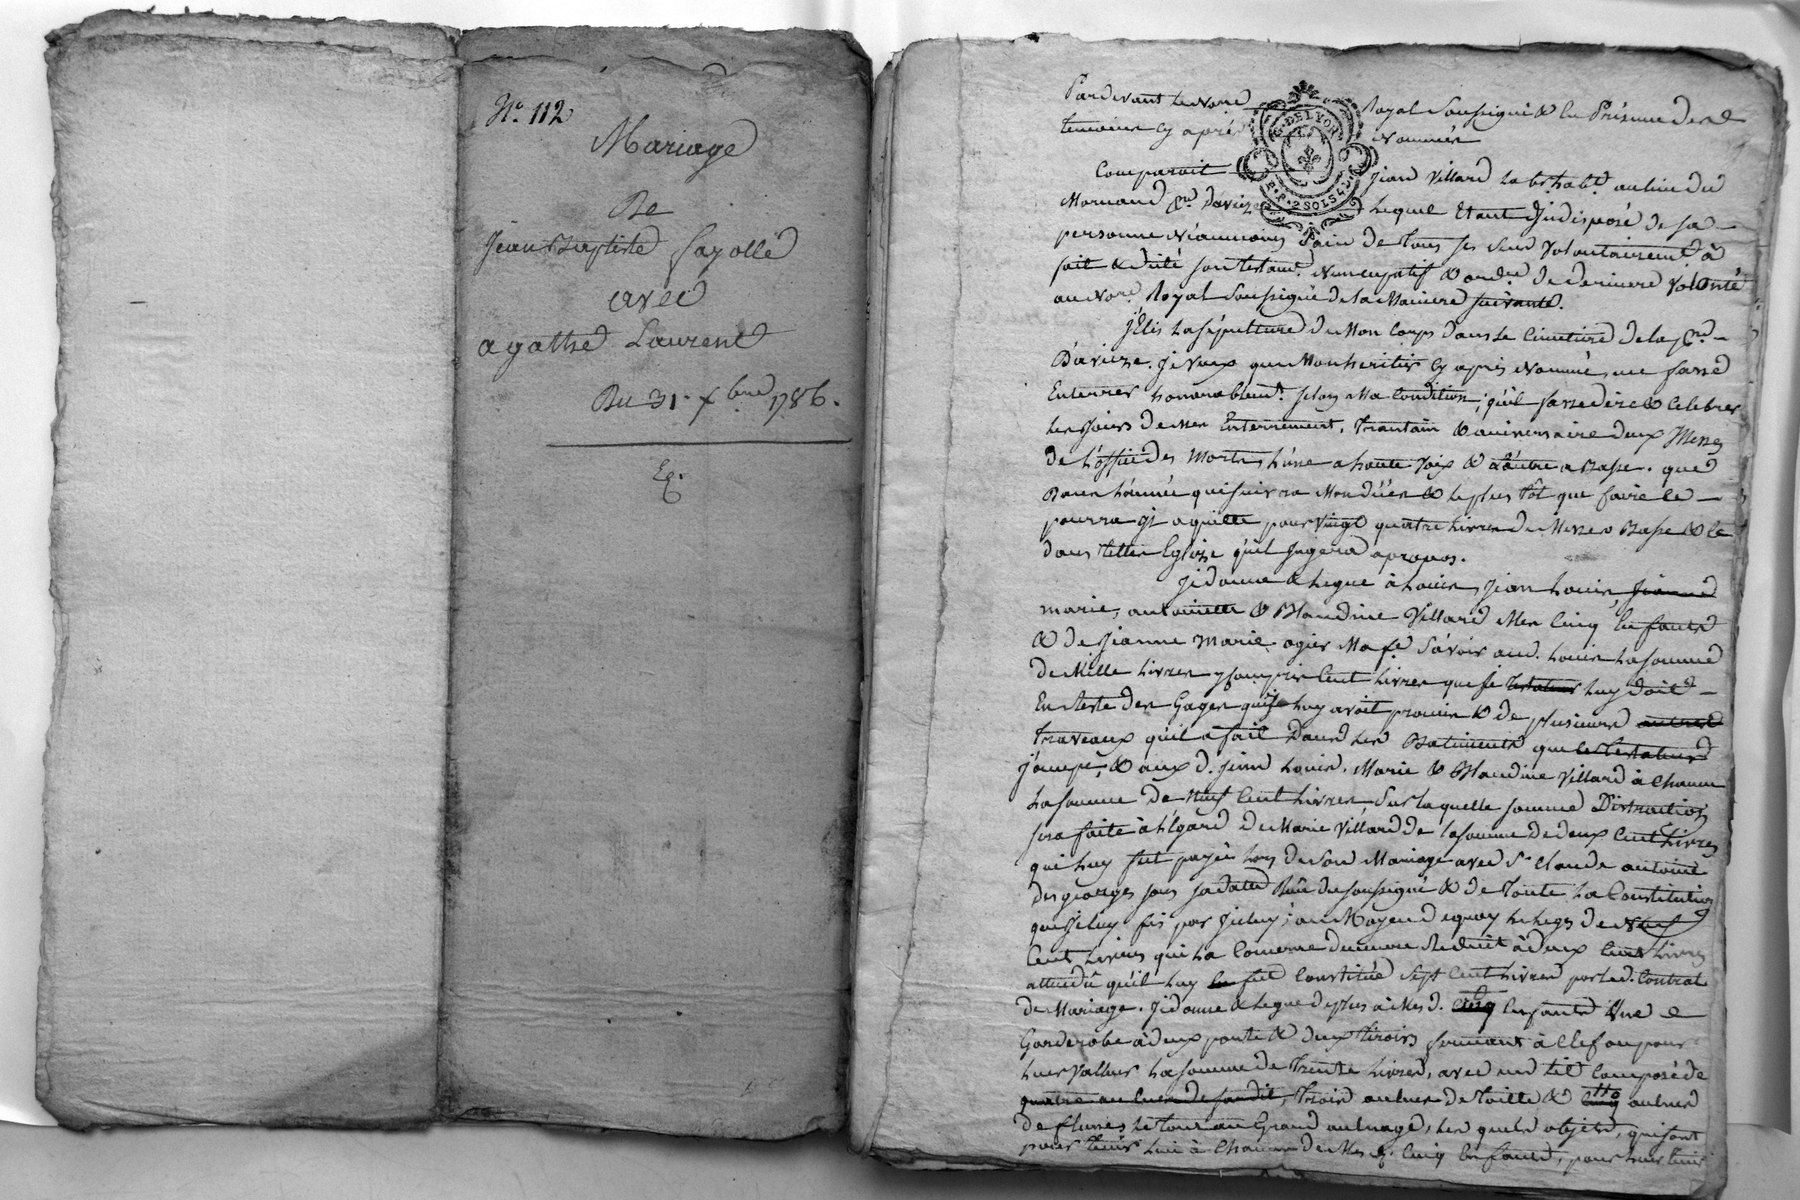 N.º 112
Mariage
De
Jean Baptiste fayolle
avec
agathe Laurent
Du 31. xbre 1786.
Eg.
Pardevant le Nore Royal Soussigné & En Présence des
temoins cy après Nommés
G. DE LYON
P.P. 2 SOLS 4 D.
Comparoit Jean Villard Lab.r hab.t au lieu du
Mornand P.sse D'aveize Lequel Etant Indisposé de sa
personne Néanmoins Sain de Tous ses sens Volontairem.t a
fait & dicté son testam.t Nuncupatif & ord.ce de derniere Volonté
au Nore Royal Soussigné de la Maniere suivante.
j'Elis La sépulture de Mon Corps dans Le Cimetiere de la P.sse
D'aveize. Je Veux que Mon heritier cy après Nommé, me fasse
Enterrer honorablem.t selon Ma Condition, qu'il fasse dire & Celebrer
Les Jours de Mes Enterrement, Trantain & aniversaire deux Messes
de L'office des Morts, L'une a haute Voix & L'autre a Basse. que
Dans L'année qui suivra Mon déces & Le plus Tôt que faire Ce
pourra Il aquitte pour Vingt quatre Livres de Messes Basses & Ce
dans telles Eglise qu'il Jugera apropos.
Je donne & Legue à Louis, Jean Louis, Jeanne
marie, antoinette & Blandine Villard Mes Cinq Enfants
& de Jeanne Marie agier Ma fe Savoir aud. Louis La somme
de Mille Livres y Compris Cent Livres que je testateur Luy doit
En Reste des Gages qu'il Luy avoit promis & de plusieurs autres
Travaux qu'il a fait Dans Les Batiments que Le testateur
j'occupe, & aux d. Jean Louis, Marie & Blandine Villard à Chacun
La somme De Neuf Cent Livres, Sur Laquelle somme Distraction
sera faite à L'Egard de Marie Villard De la somme de deux Cent Livres
qui Luy fut payée Lors de Son Mariage avec S.r Claude antoine
des georges sous sa datte Reçu du soussigné & de Toute La Constitution
que Je Luy fis par Icelui; au Moyen de quoy Le Legs de Neuf
Cent Livres qui La Concerne demeure Réduit à deux Cent Livres
attendû qu'il Luy fut Constitué Sept Cent Livres par Led. Contrat
de Mariage. Je donne & Legue de plus à Mes d. Cinq Enfants Une
Garderobe à deux porte & deux Tiroirs fermant à Clef ou pour
Leur Valleur La somme de Trente Livres, avec un Lit Composé de
quatre aulnes de sandit, Trois aulnes de Toille & Cinq aulnes
de flannes Le Tout au Grand aulnage, Les quels objets, qui sont
pour Tenir Lieu à Chacun de Mes d. Cinq Enfants, pour Leur Tenir